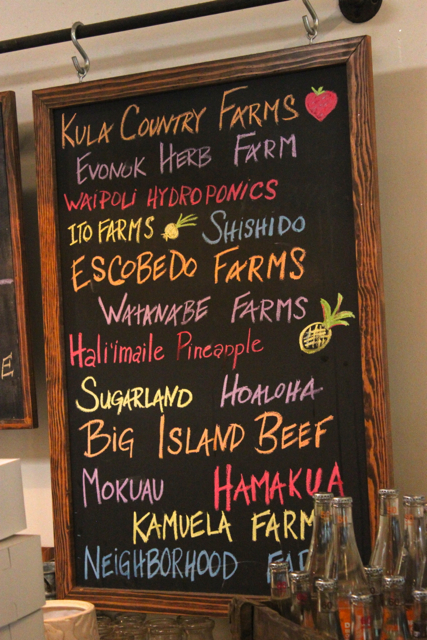 KULA COUNTRY FARMS
EVONUK HERB FARM
WAIPOLI HYDROPONICS
ITO FARMS SHISHIDO
ESCOBEDO FARMS
WATANABE FARMS
Hali'imaile Pineapple
SUGARLAND HOALOHA
BIG ISLAND BEEF
MOKUAU HAMAKUA
KAMUELA FARM
NEIGHBORHOOD
E